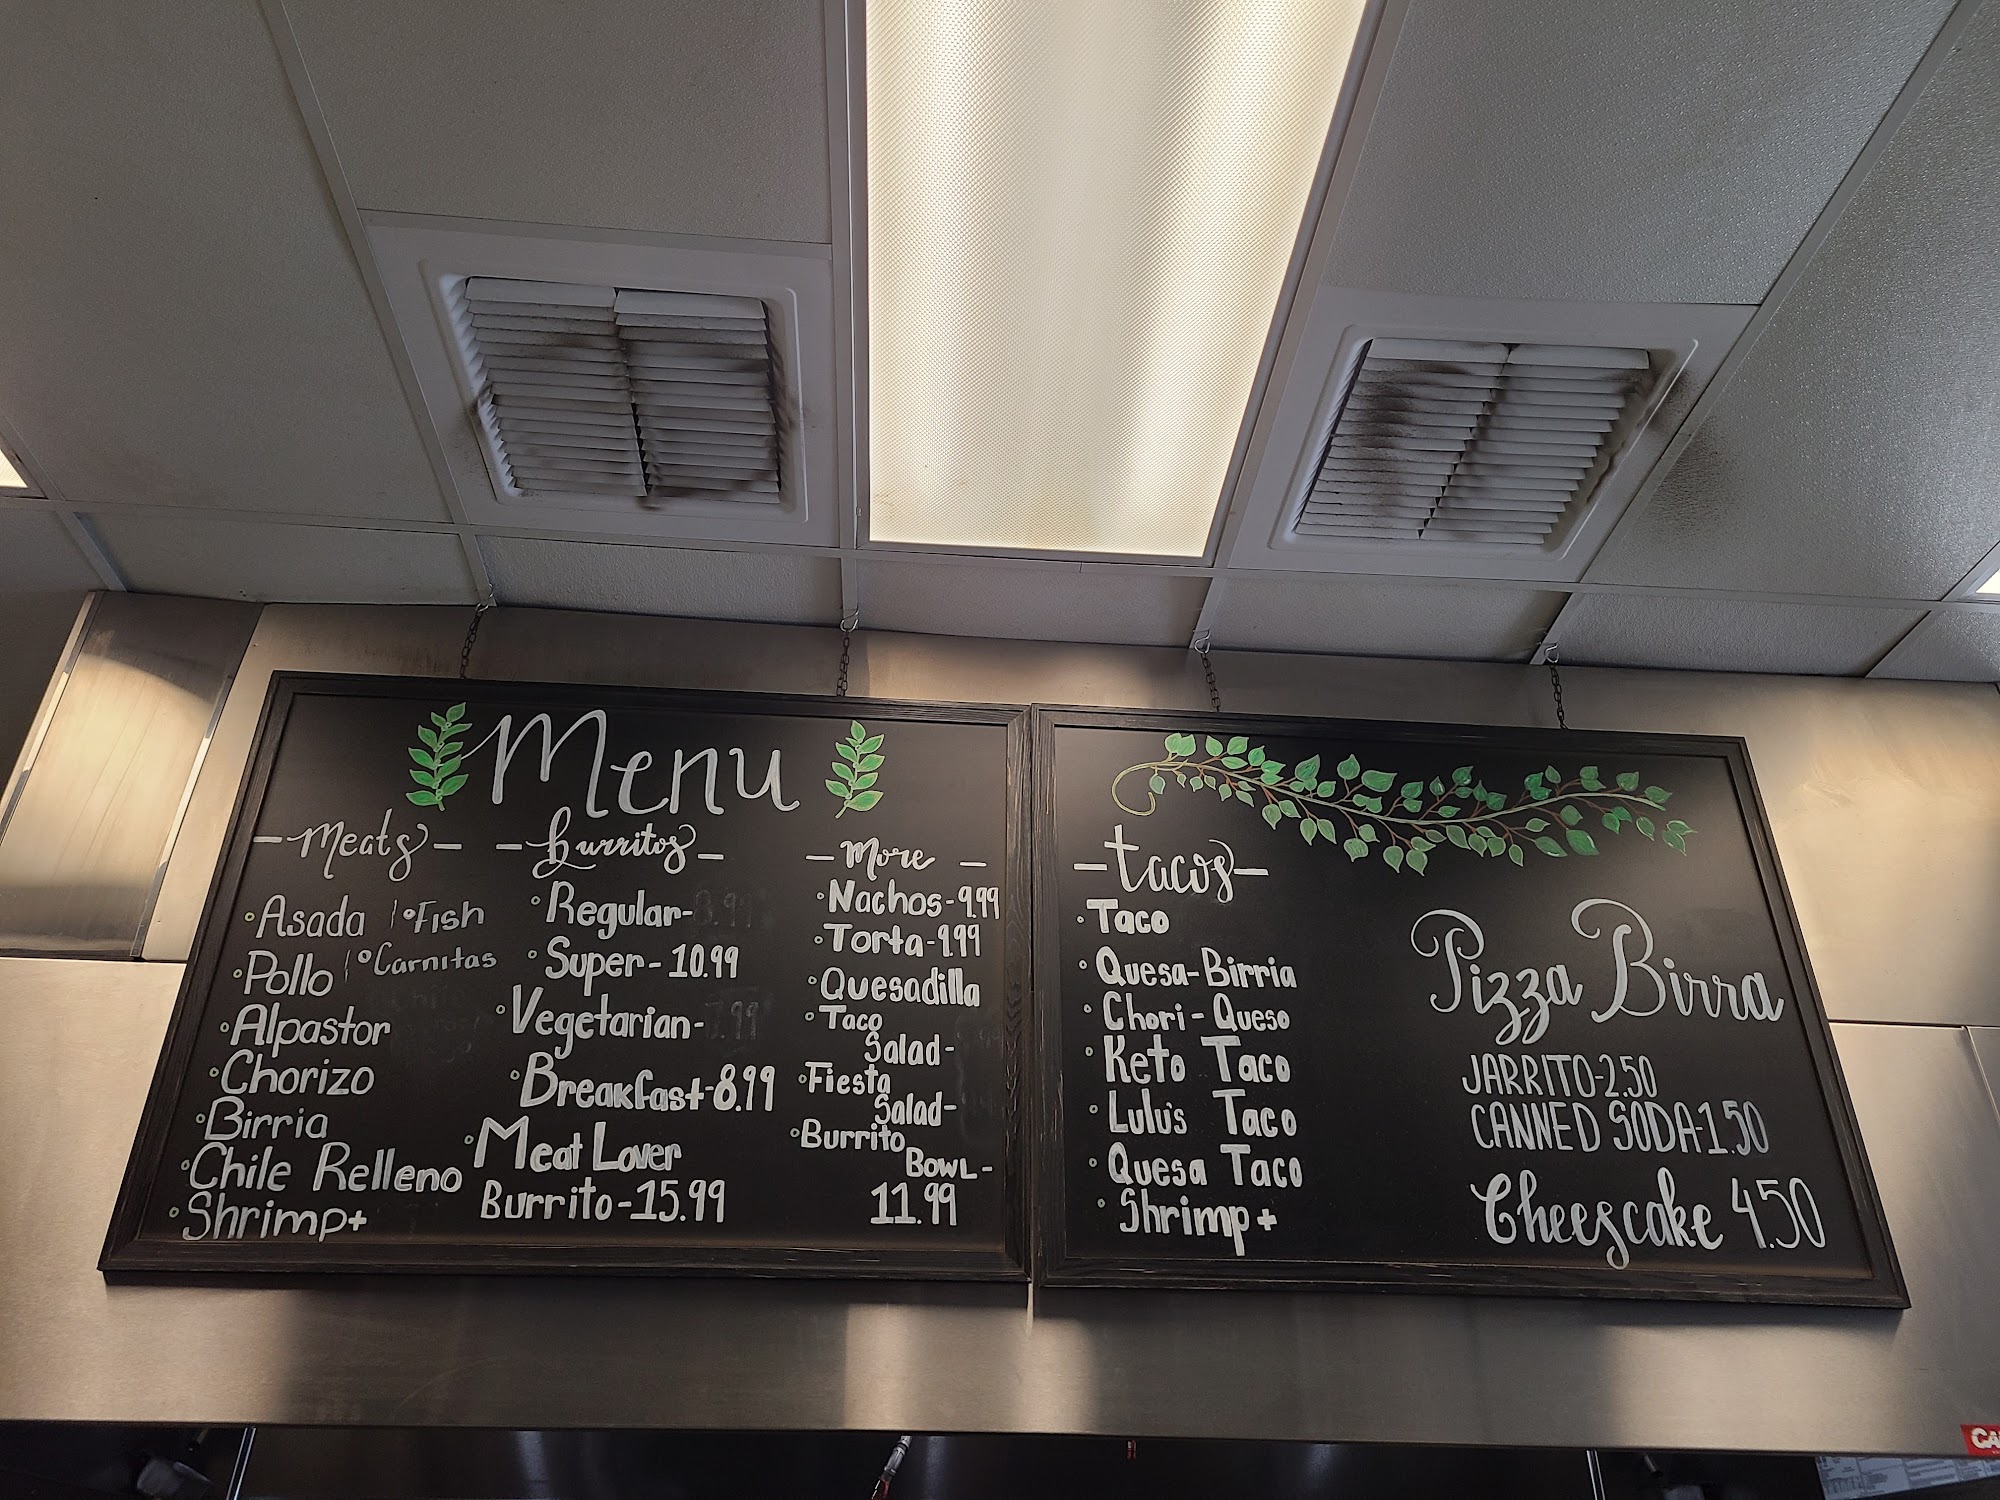 Menu
Meats
Asada
Fish
Pollo
Carnitas
Alpastor
Chorizo
Birria
Chile Relleno
Shrimp+
Burritos
Regular-
Super-10.99
Vegetarian-
Breakfast-8.99
Meat Lover
Burrito-15.99
More
Nachos-9.99
Torta-9.99
Quesadilla
Taco
Salad-
Fiesta
Salad-
Burrito
Bowl-
11.99
Tacos
Taco
Quesa-Birria
Chori-Queso
Keto Taco
Lulu's Taco
Quesa Taco
Shrimp+
Pizza Birra
JARRITO-2.50
CANNED SODA-1.50
Cheescake 4.50